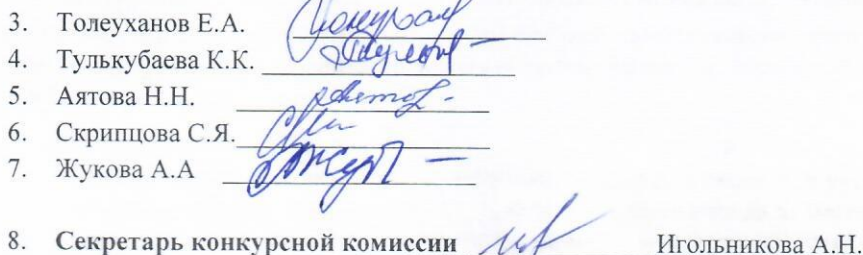 3. Толеуханов Е.А.
4. Тулькубаева К.К.
5. Аятова Н.Н.
6. Скрипцова С.Я.
7. Жукова А.А
8. Секретарь конкурсной комиссии Игольникова А.Н.